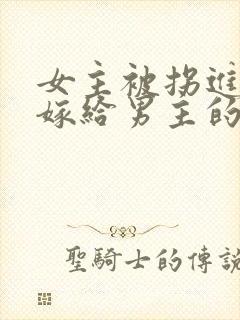 女主被拐進
嫁給男主的
聖騎士的傳說